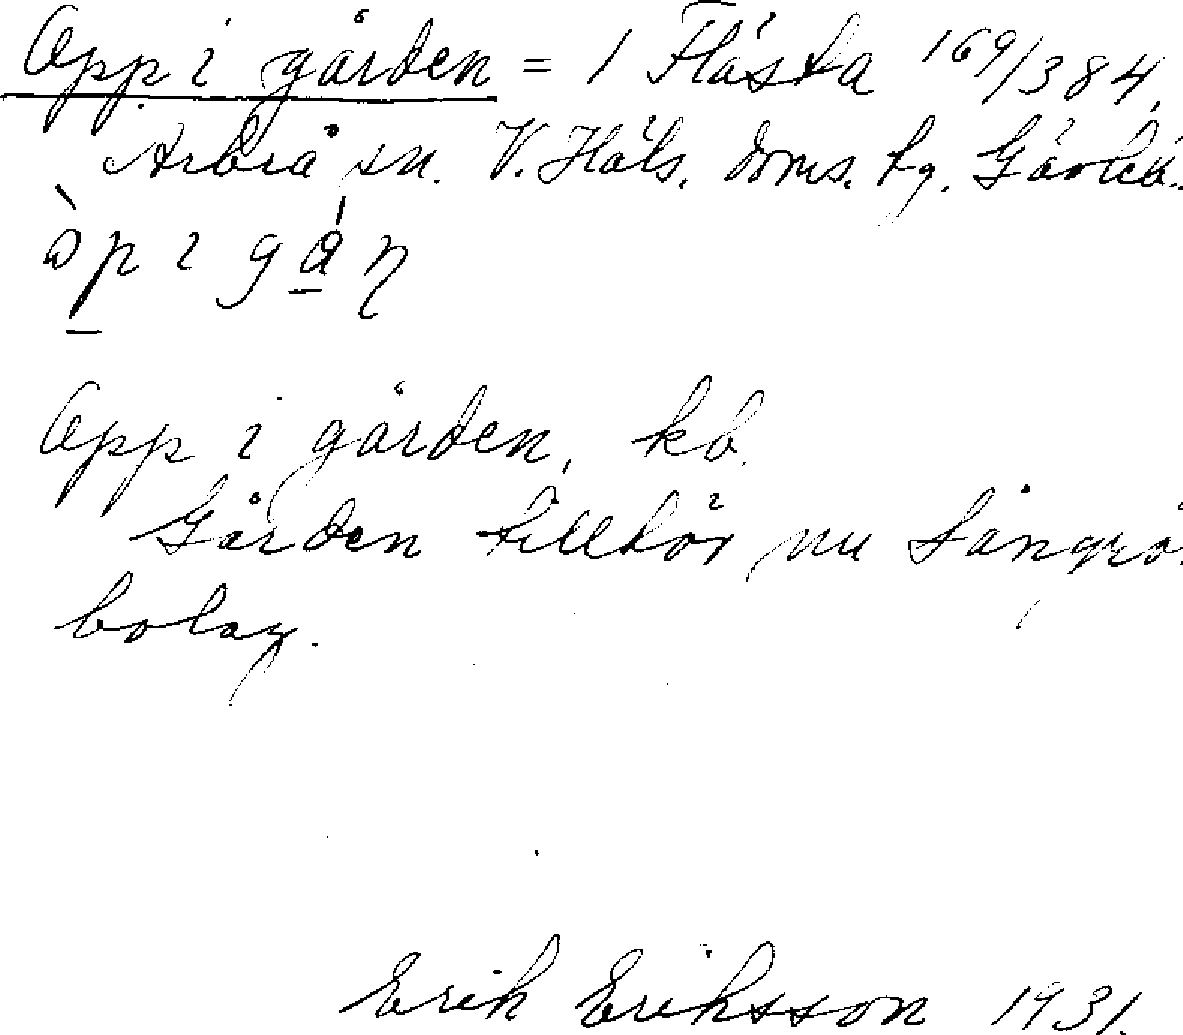 Opp i gården = 1 Flästa 169/384,
Arbrå sn. V. Häls. doms. tg. Gävleb.
òp i gá̱n
Opp i gården, kb.
Gården tillhör nu Långrör
bolag.
Erik Eriksson 1931.